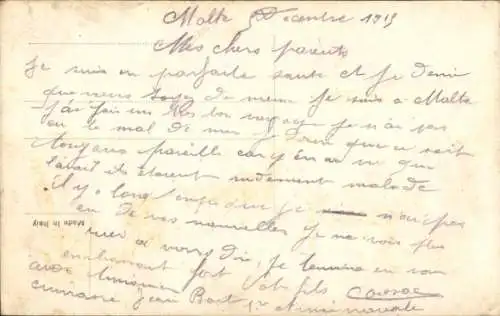 Malte Decembre 1915
Mes chers parents
Je suis en parfaite sante et je desir
que vous soyez de meme je suis a Malte
j'ai fait un tres bon voyage je n'ai pas
eu le mal de mer je desir que ce soit
toujours pareille car j'en ai vu que
l'avait ils etaient rudement malade
Il y a longtemps que je n'ai pas
eu de vos nouvelles je ne vois plus
rien a vous dire je termine en vous
embrassant fort Votre fils
cuirassé Jean Bart
Made in Italy